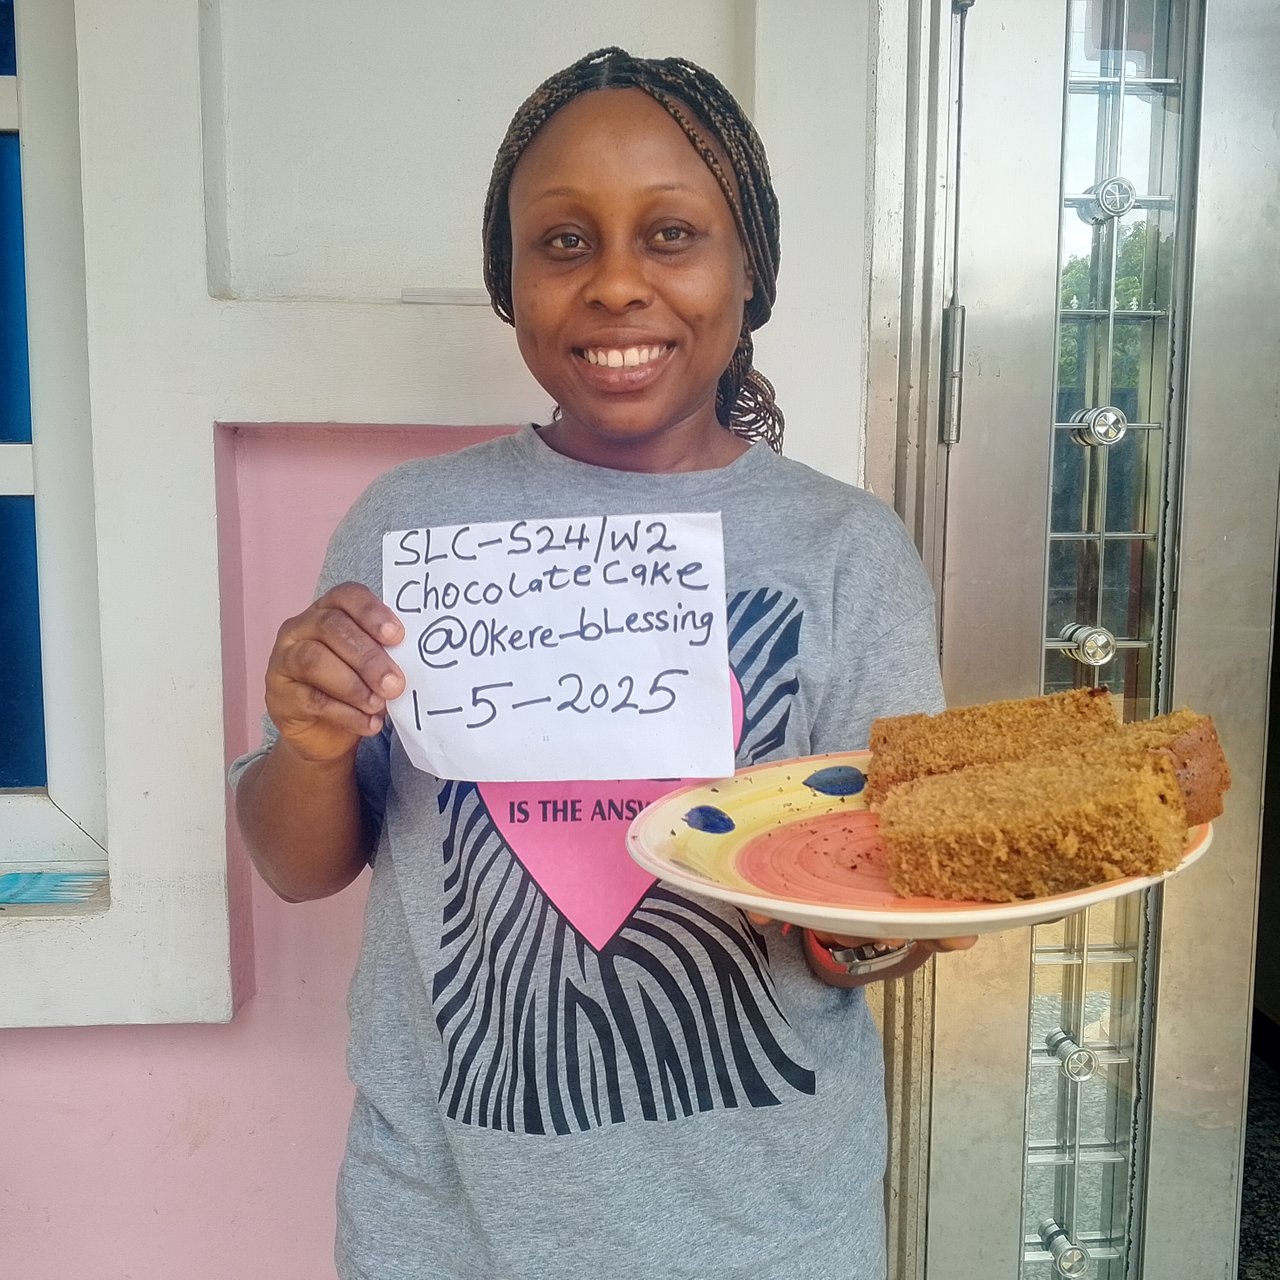 SLC-S24/W2
Chocolate Cake
@Okere-bLessing
1-5-2025
IS THE